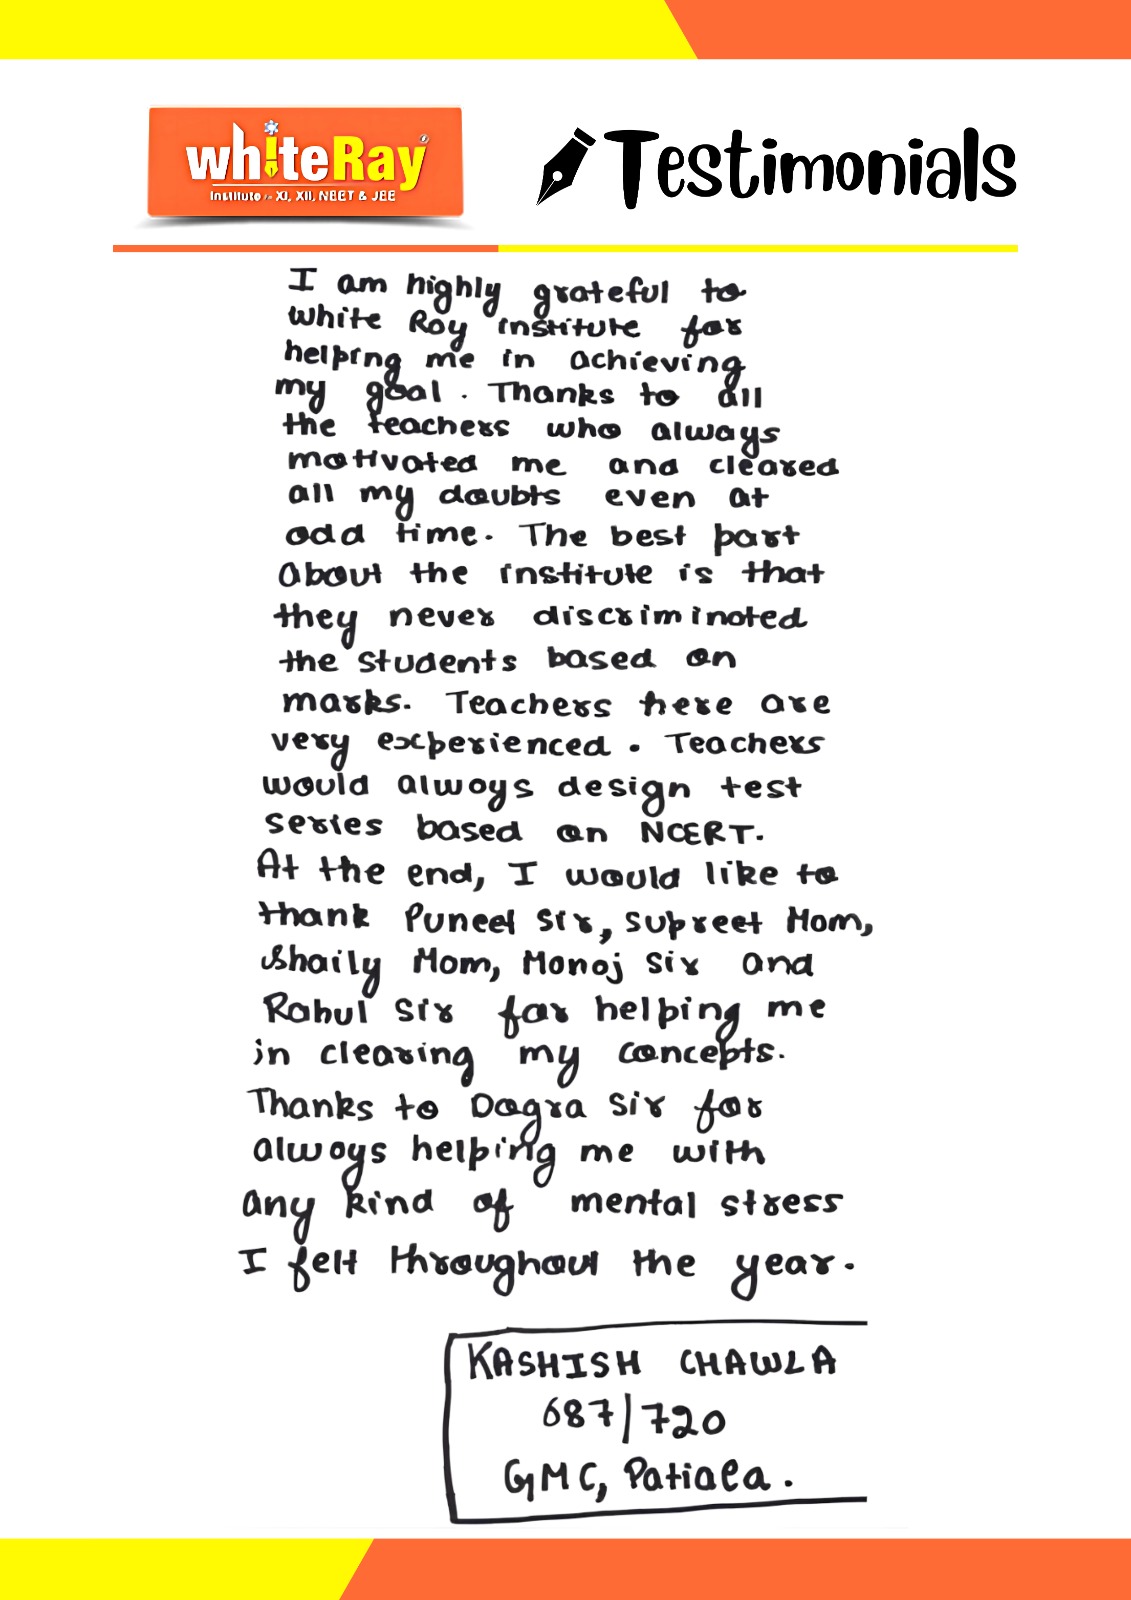 whiteRay
Institute for XI, XII, NEET & JEE
Testimonials
I am highly grateful to
white Ray institute for
helping me in achieving
my goal. Thanks to all
the teachers who always
motivated me and cleared
all my doubts even at
odd time. The best part
about the institute is that
they never discriminated
the students based on
marks. Teachers here are
very experienced. Teachers
would always design test
series based on NCERT.
At the end, I would like to
thank Puneet Sir, Supreet Mam,
Shaily Mam, Manoj Sir and
Rahul Sir for helping me
in clearing my concepts.
Thanks to Dogra Sir for
always helping me with
any kind of mental stress
I felt throughout the year.
KASHISH CHAWLA
687/720
GMC, Patiala.